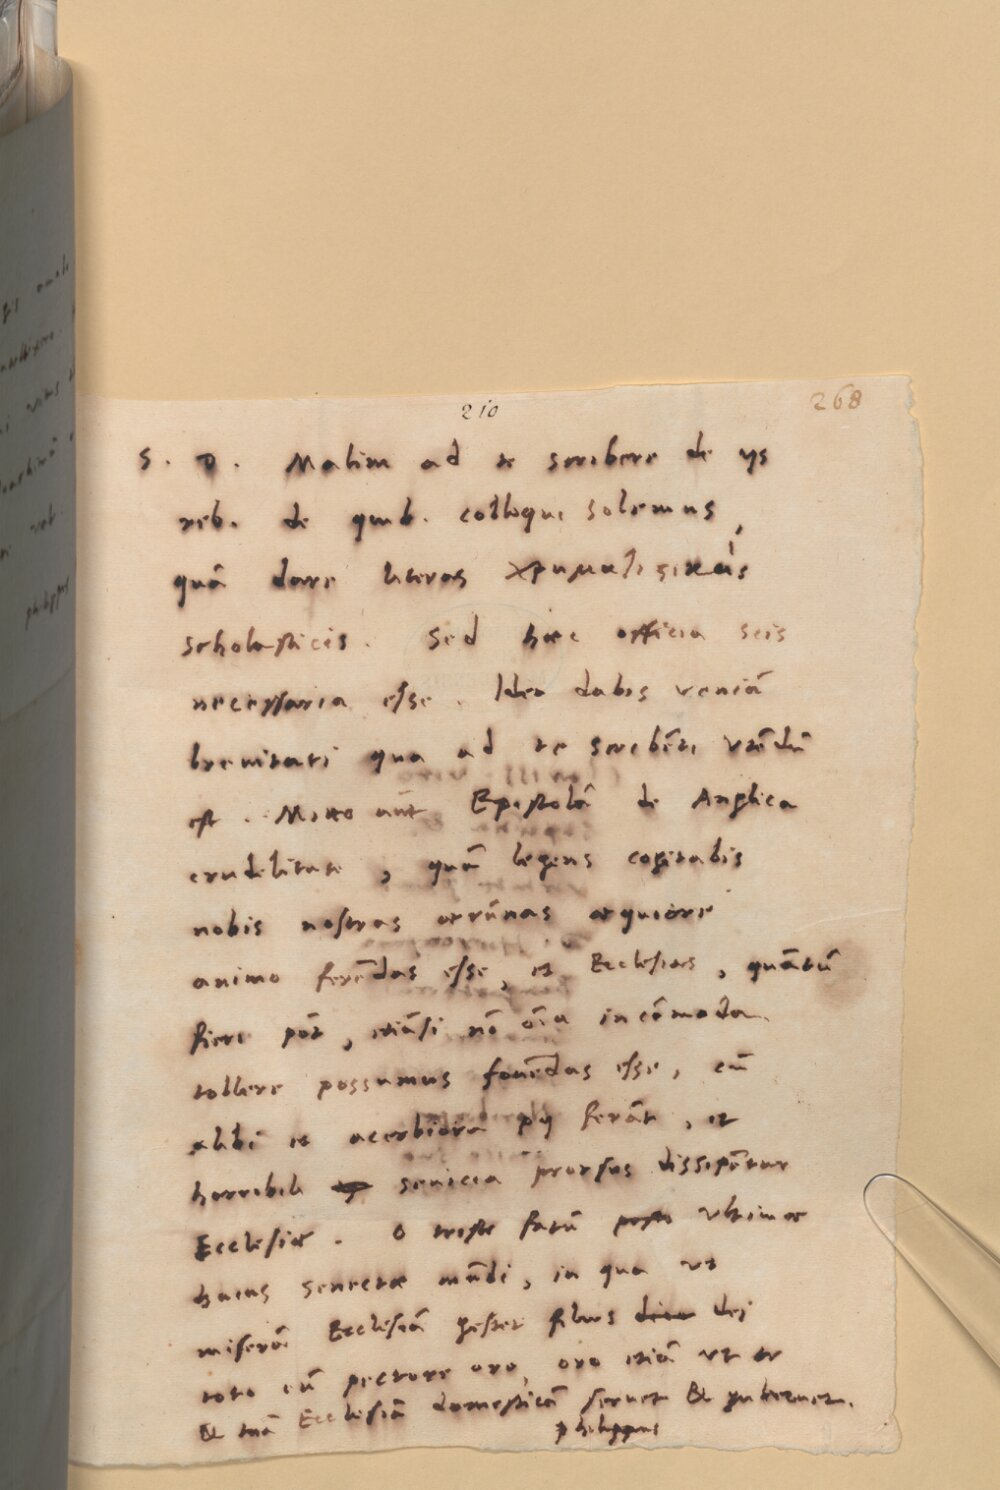 210
268
S. D. Malim ad te scribere de ijs
reb. de quib. colloqui solemus,
quā dare literas χρηματιστικὰς
scholasticis. Sed haec officia scis
necessaria esse. Ideo dabis veniā
breuitati qua ad te scribēti vtēdū
est. Mitto aūt Epistolā de Anglica
crudelitate, quā legens cogitabis
nobis nostras aerūnas aequiore
animo ferēdas esse, et Ecclesias, quātū
fieri pōt, etiāsi nō oīa incōmoda
tollere possumus fouēdas esse, cū
alibi et acerbiora pij ferāt, et
horribili seuicia prorsus dissipētur
Ecclesiae. O triste fatū ultimae
huius senectae mūdi, in qua vt
miserā Ecclesiā gestet filius dei
toto eū pectore oro, oro etiā vt te
& tuā Ecclesiā domesticā seruet & gubernet.
philippus